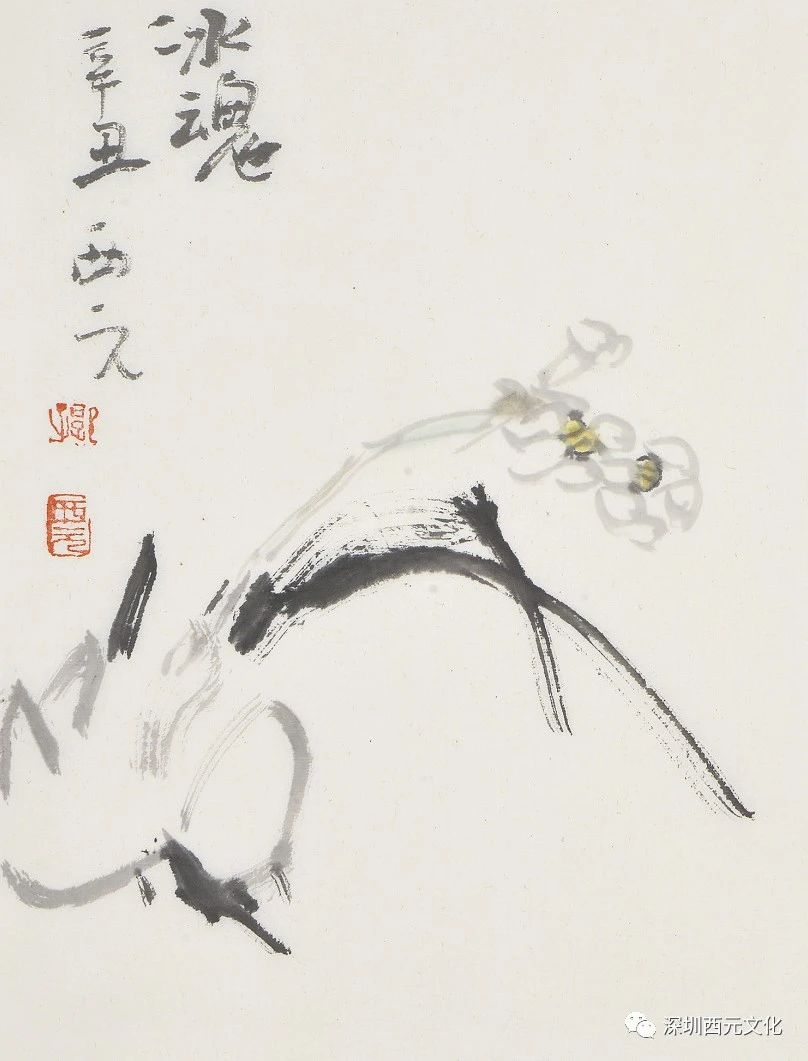 冰魂
辛丑 西元
西元
深圳西元文化